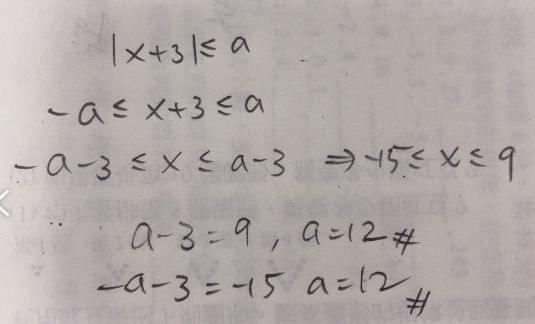 |x+3|≤a
-a≤x+3≤a
-a-3≤x≤a-3 ⇒-15≤x≤9
∵ a-3=9, a=12#
-a-3=-15 a=12#